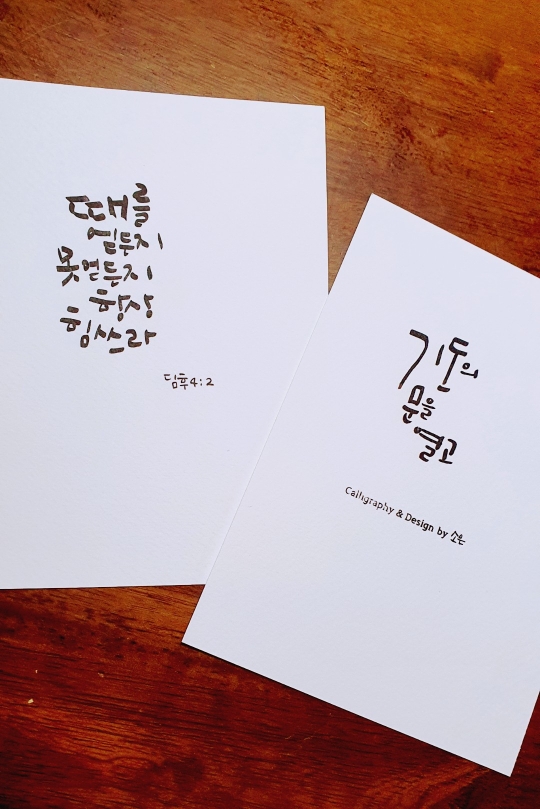 때를
얻든지
못얻든지
항상
힘쓰라
딤후4:2
기도의
문을
열고
Calligraphy & Design by 소은